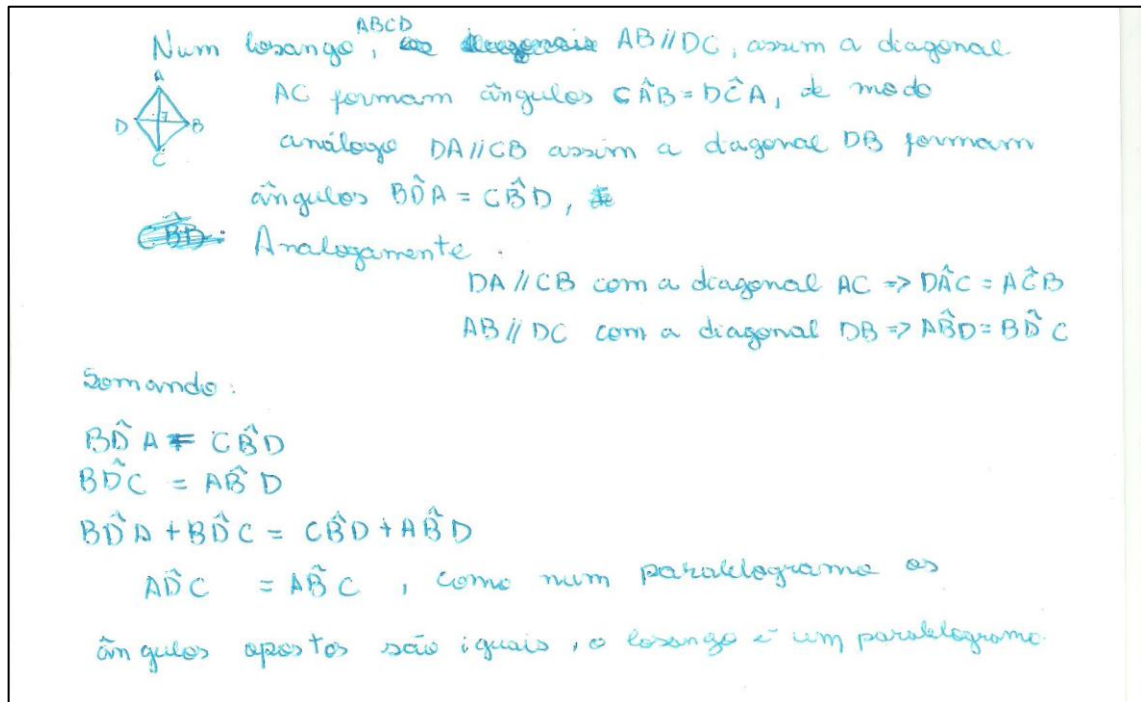 ABCD
Num losango, AB//DC, assim a diagonal
AC formam ângulos CÂB = DĈA, de modo
análogo DA//CB assim a dagonal DB formam
ângulos BD̂A = CB̂D,
CB̂D: Analogamente.
DA // CB com a diagonal AC => DÂC = AĈB
AB // DC com a diagonal DB => AB̂D = BD̂C
A
D B
C
Somando:
BD̂A = CB̂D
BD̂C = AB̂D
BD̂A + BD̂C = CB̂D + AB̂D
AD̂C = AB̂C, como num paralelogramo os
ângulos opostos são iguais, o losango é um paralelogramo.